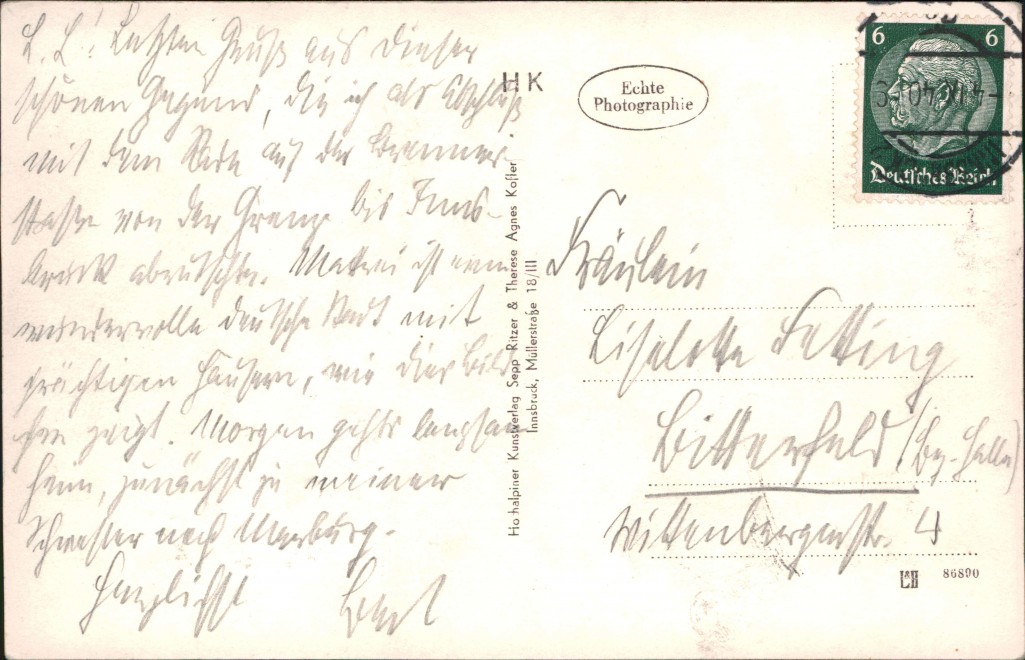 L. L.! Letzten Gruß aus dieser
schönen Gegend, die ich als Abschluß
mit dem Rade auf der Brenner-
straße von der Grenze bis Inns-
bruck abrutschte. Matrei ist eine
wundervolle deutsche Stadt mit
prächtigen Häusern, wie dies Bild-
chen zeigt. Morgen gehts langsam
heim, zunächst zu meiner
Schwester nach Marburg.
Herzlichst
HK
Echte
Photographie
6 6
Deutsches Reich
Hochalpiner Kunstverlag Sepp Ritzer & Therese Agnes Kofler
Innsbruck, Müllerstraße 18/III
Fräulein
Liselotte Fetting
Bitterfeld (Bz. Halle)
Wittenbergerstr. 4
86890